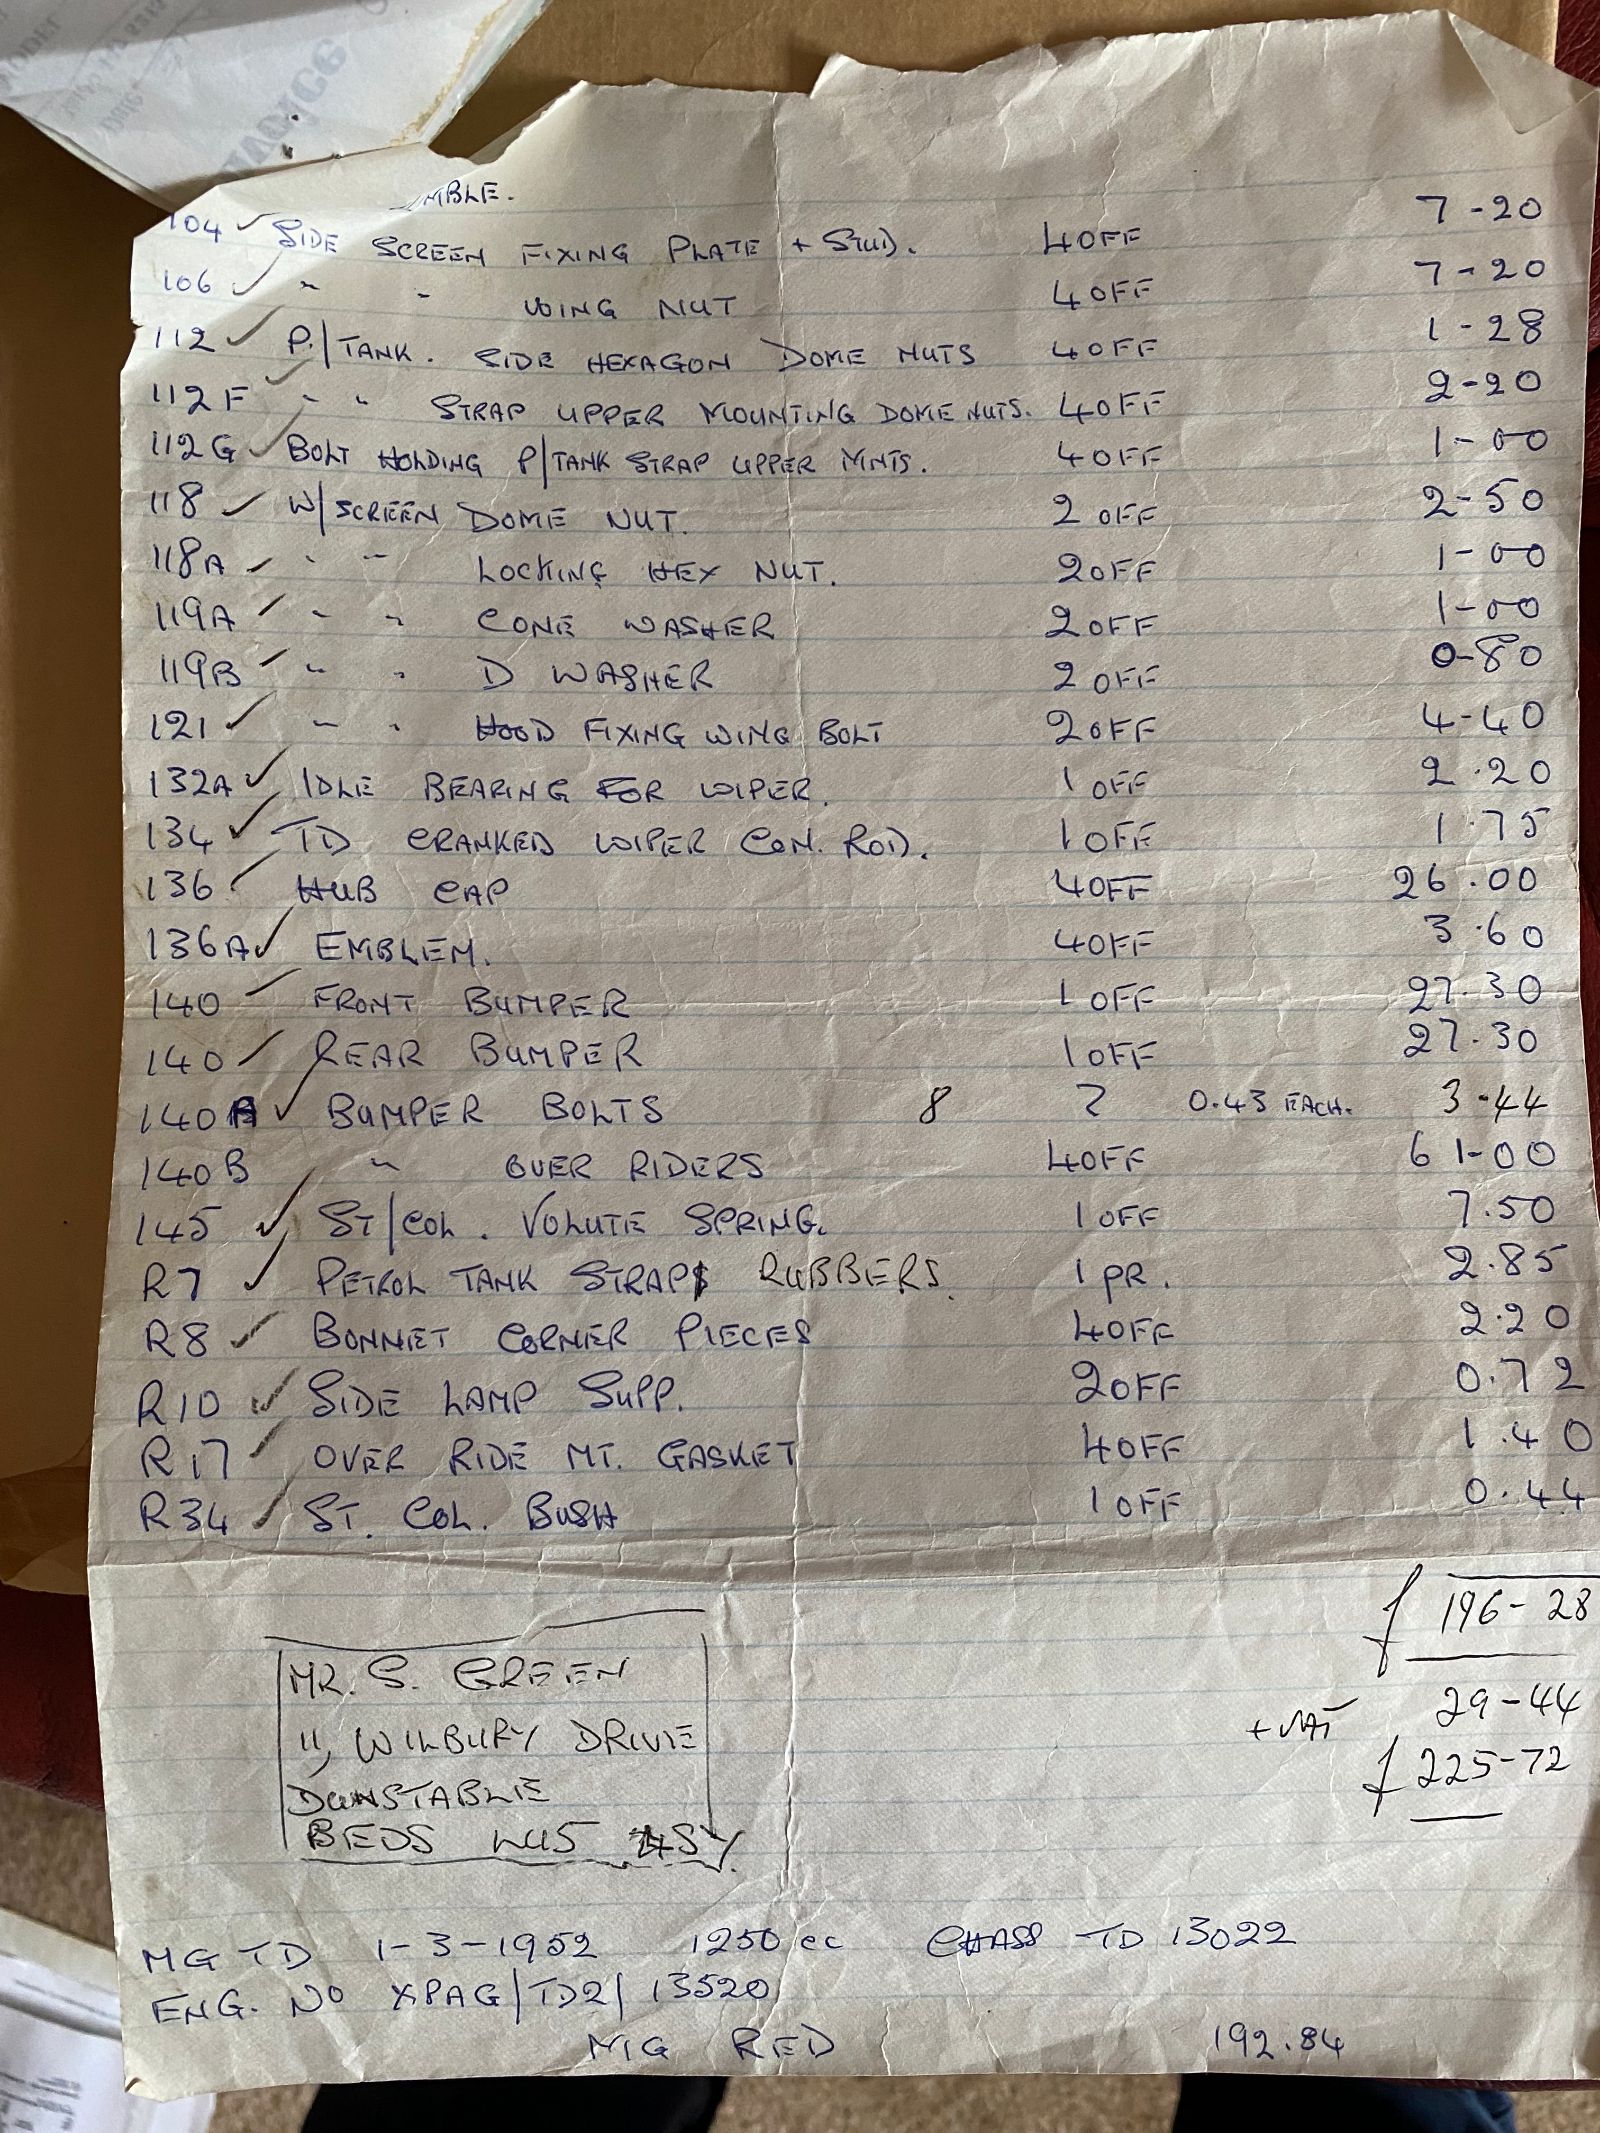 Invoice
MBLE.
104 ✓ SIDE SCREEN FIXING PLATE + STUD. 4 OFF 7-20
106 ✓ " " WING NUT 4 OFF 7-20
112 ✓ P/TANK. SIDE HEXAGON DOME NUTS 4 OFF 1-28
112F ✓ " " STRAP UPPER MOUNTING DOME NUTS. 4 OFF 2-20
112G ✓ BOLT HOLDING P/TANK STRAP UPPER MNTS. 4 OFF 1-00
118 ✓ W/SCREEN DOME NUT. 2 OFF 2-50
118A ✓ " " LOCKING HEX NUT. 2 OFF 1-00
119A ✓ " " CONE WASHER 2 OFF 1-00
119B ✓ " " D WASHER 2 OFF 0-80
121 ✓ " " HOOD FIXING WING BOLT 2 OFF 4-40
132A ✓ IDLE BEARING FOR WIPER. 1 OFF 2.20
134 ✓ TD CRANKED WIPER CON. ROD. 1 OFF 1.75
136 ✓ HUB CAP 4 OFF 26.00
136A ✓ EMBLEM. 4 OFF 3.60
140 ✓ FRONT BUMPER 1 OFF 27.30
140 ✓ REAR BUMPER 1 OFF 27.30
140A ✓ BUMPER BOLTS 8 ? 0.43 EACH. 3-44
140B " OVER RIDERS 4 OFF 61-00
145 ✓ ST/COL. VOLUTE SPRING. 1 OFF 7.50
R7 ✓ PETROL TANK STRAP RUBBERS. 1 PR. 2.85
R8 ✓ BONNET CORNER PIECES 4 OFF 2.20
R10 ✓ SIDE LAMP SUPP. 2 OFF 0.72
R17 ✓ OVER RIDE MT. GASKET 4 OFF 1.40
R34 ✓ ST. COL. BUSH 1 OFF 0.44
£ 196-28
+ VAT 29-44
£ 225-72
MR. S. GREEN
11, WILBURY DRIVE
DUNSTABLE
BEDS LU5 4SY.
MG TD 1-3-1952 1250 cc CHASS TD 13022
ENG. NO XPAG/TD2/13520
MG RED 192.84